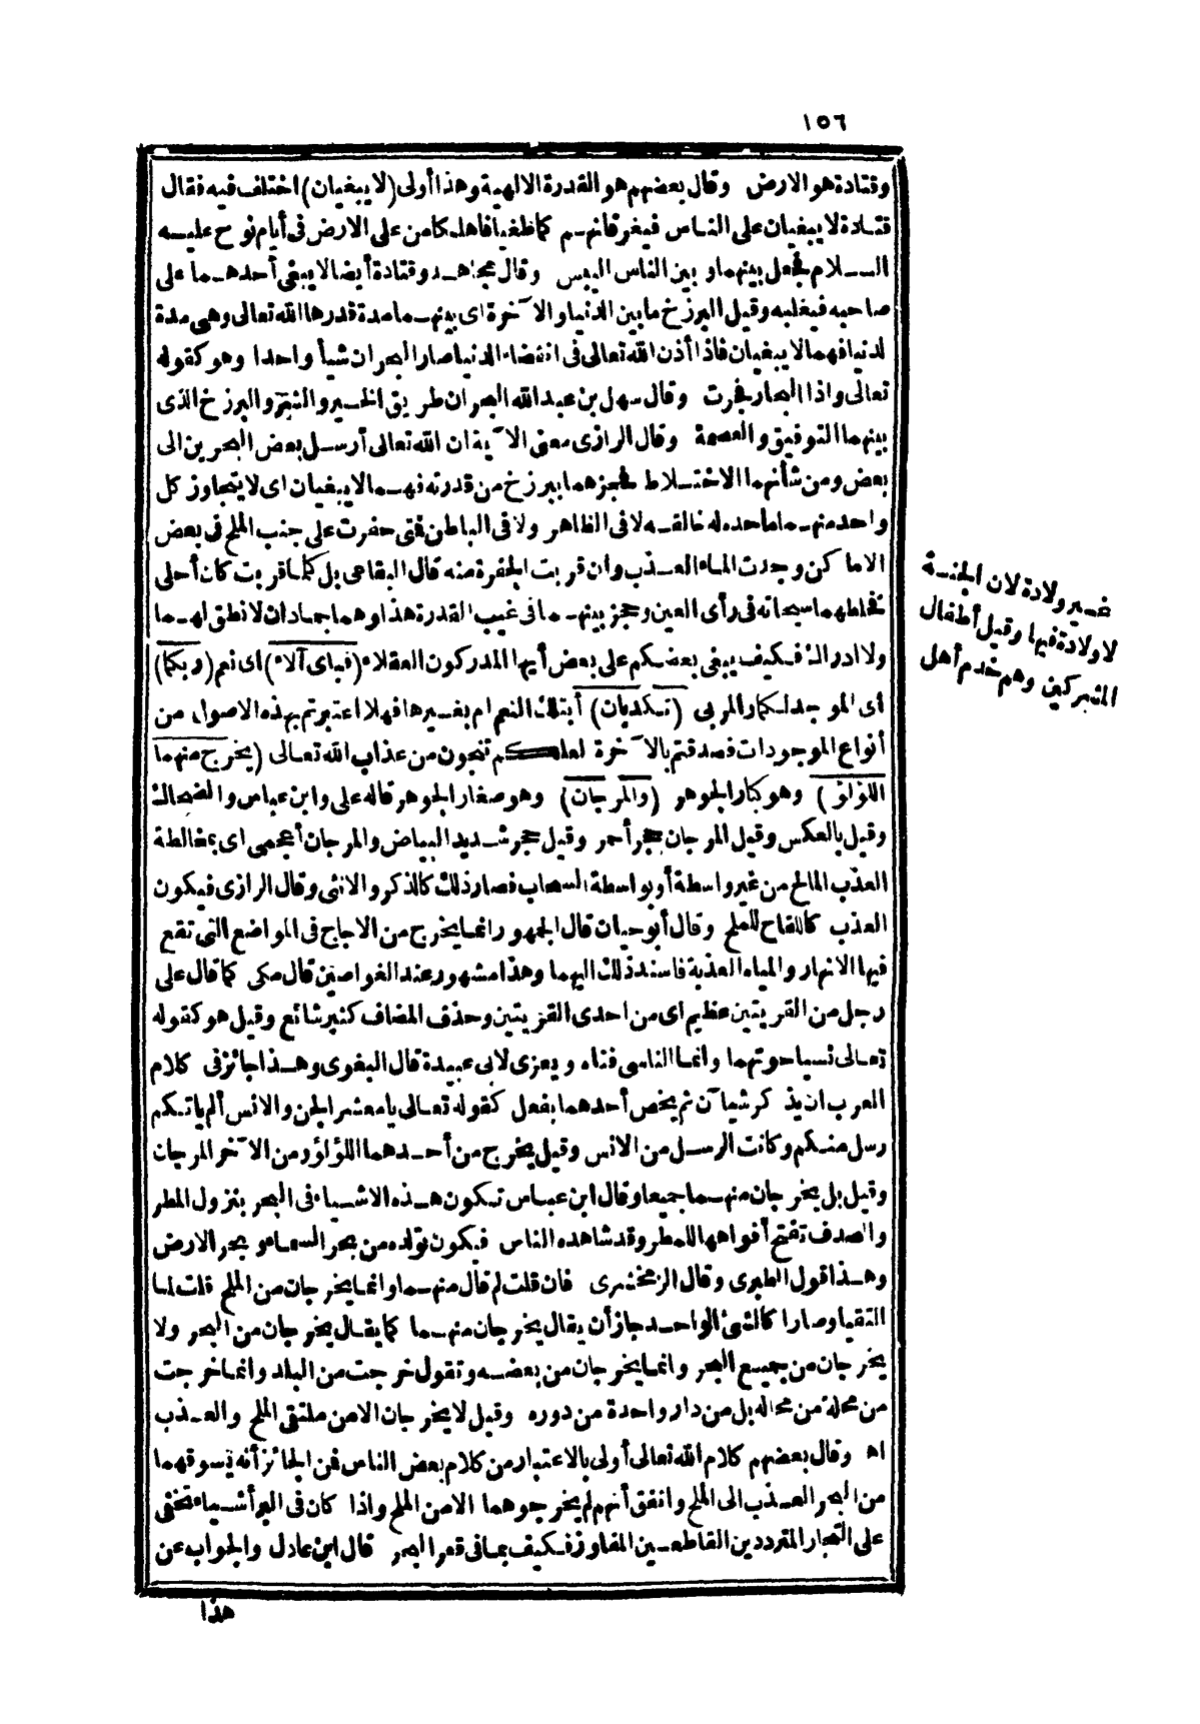 ١٥٦
وقتادة هو الارض وقال بعضهم هو القدرة الالهية وهذا أولى (لا يبغيان) اختلف فيه فقال
قتادة لا يبغيان على الناس فيغرقانهم كما طغيا فاهلكا من على الارض فى أيام نوح عليه
السلام فجعل بينهما وبين الناس اليبس وقال مجاهد وقتادة أيضا لا يبغى أحدهما على
صاحبه فيغلبه وقيل البرزخ ما بين الدنيا والآخرة اى بينهما مدة قدرها الله تعالى وهى مدة
الدنيا فهما لا يبغيان فاذا أذن الله تعالى فى انقضاء الدنيا صار البحران شيأ واحدا وهو كقوله
تعالى واذا البحار فجرت وقال سهل بن عبد الله البحران طريق الخير والشر والبرزخ الذى
بينهما التوفيق والعصمة وقال الرازى معنى الآية ان الله تعالى أرسل بعض البحرين الى
بعض ومن شأنهما الاختلاط فحجزهما ببرزخ من قدرته فهما لا يبغيان اى لا يتجاوز كل
واحد منهما ما حده له خالقه لا فى الظاهر ولا فى الباطن فتى حفرت على جنب الملح فى بعض
الاماكن وجدت الماء العذب وان قربت الحفرة منه قال البقاعى بل كلما قربت كان أحلى
فخلطهما سبحانه فى رأى العين وحجز بينهما فى غيب القدرة هذا وهما جمادان لا نطق لهما
ولا ادراك فكيف يبغى بعضكم على بعض أيها المدركون العقلاء (فباى آلاء) اى نعم (ربكما)
أى الموجد لكما المربى (تكذبان) أبتلك النعم ام بغيرها فهلا اعتبرتم بهذه الاصول من
أنواع الموجودات فصدقتم بالآخرة لعلكم تنجون من عذاب الله تعالى (يخرج منهما
اللؤلؤ) وهو كبار الجوهر (والمرجان) وهو صغار الجوهر قاله على وابن عباس والضحاك
وقيل بالعكس وقيل المرجان حجر أحمر وقيل حجر شديد البياض والمرجان أعجمى اى بمخالطة
العذب المالح من غير واسطة أو بواسطة السحاب فصار ذلك كالذكر والانثى وقال الرازى فيكون
العذب كاللقاح للملح وقال أبو حيان قال الجمهور انما يخرج من الاجاج فى المواضع التى تقع
فيها الانهار والمياه العذبة فاسند ذلك اليهما وهذا مشهور عند الغواصين قال مكى كما قال على
رجل من القريتين عظيم اى من احدى القريتين وحذف المضاف كثير شائع وقيل هو كقوله
تعالى نسيا حوتهما وانما الناسى فتاه ويعزى لابى عبيدة قال البغوى وهذا جائز فى كلام
العرب ان يذكر شيآن ثم يخص أحدهما بفعل كقوله تعالى يا معشر الجن والانس ألم ياتكم
رسل منكم وكانت الرسل من الانس وقيل يخرج من أحدهما اللؤلؤ ومن الآخر المرجان
وقيل بل يخرجان منهما جميعا وقال ابن عباس تكون هذه الاشياء فى البحر بنزول المطر
والصدف تفتح أفواهها للمطر وقد شاهده الناس فيكون تولده من بحر السماء وبحر الارض
وهذا قول الطبرى وقال الزمخشرى فان قلت لم قال منهما وانما يخرجان من الملح قلت لما
التقيا وصارا كالشئ الواحد جاز أن يقال يخرجان منهما كما يقال يخرجان من البحر ولا
يخرجان من جميع البحر وانما يخرجان من بعضه وتقول خرجت من البلد وانما خرجت
من محلة من محاله بل من دار واحدة من دوره وقيل لا يخرجان الا من ملتقى الملح والعذب
اه وقال بعضهم كلام الله تعالى أولى بالاعتبار من كلام بعض الناس فمن الجائز أنه يسوقهما
من البحر العذب الى الملح واتفق أنهم لم يخرجوهما الا من الملح واذا كان فى البر أشياء تخفى
على التجار المترددين القاطعين المفاوز فكيف بما فى قعر البحر قال ابن عادل والجواب عن
هذا
غير ولادة لان الجنة
لا ولادة فيها وقيل أطفال
المشركين وهم خدم أهل